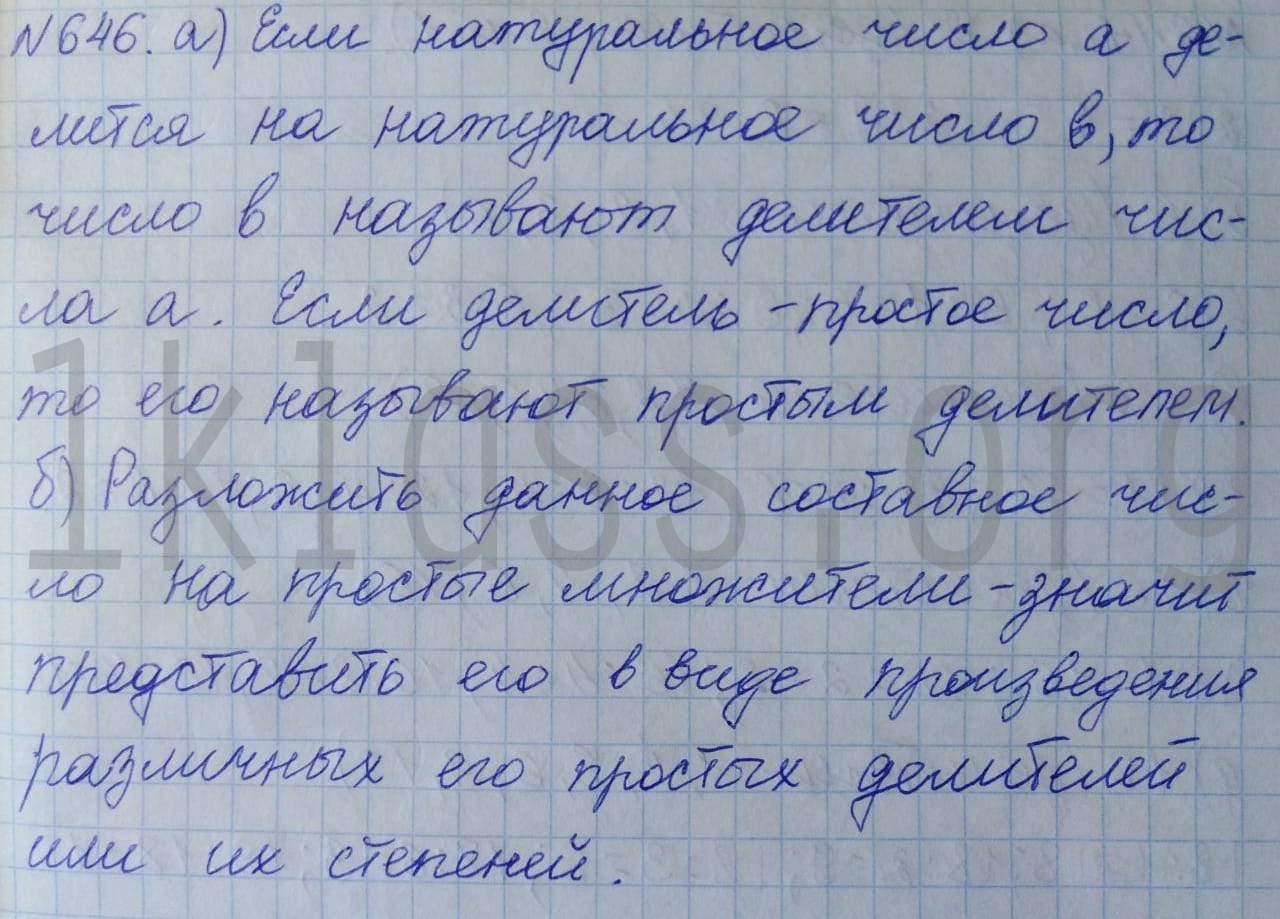 №646. а) Если натуральное число а де-
лится на натуральное число в, то
число в называют делителем чис-
ла а. Если делитель - простое число,
то его называют простым делителем.
б) Разложить данное составное чис-
ло на простые множители - значит
представить его в виде произведения
различных его простых делителей
или их степеней.
1klass.org